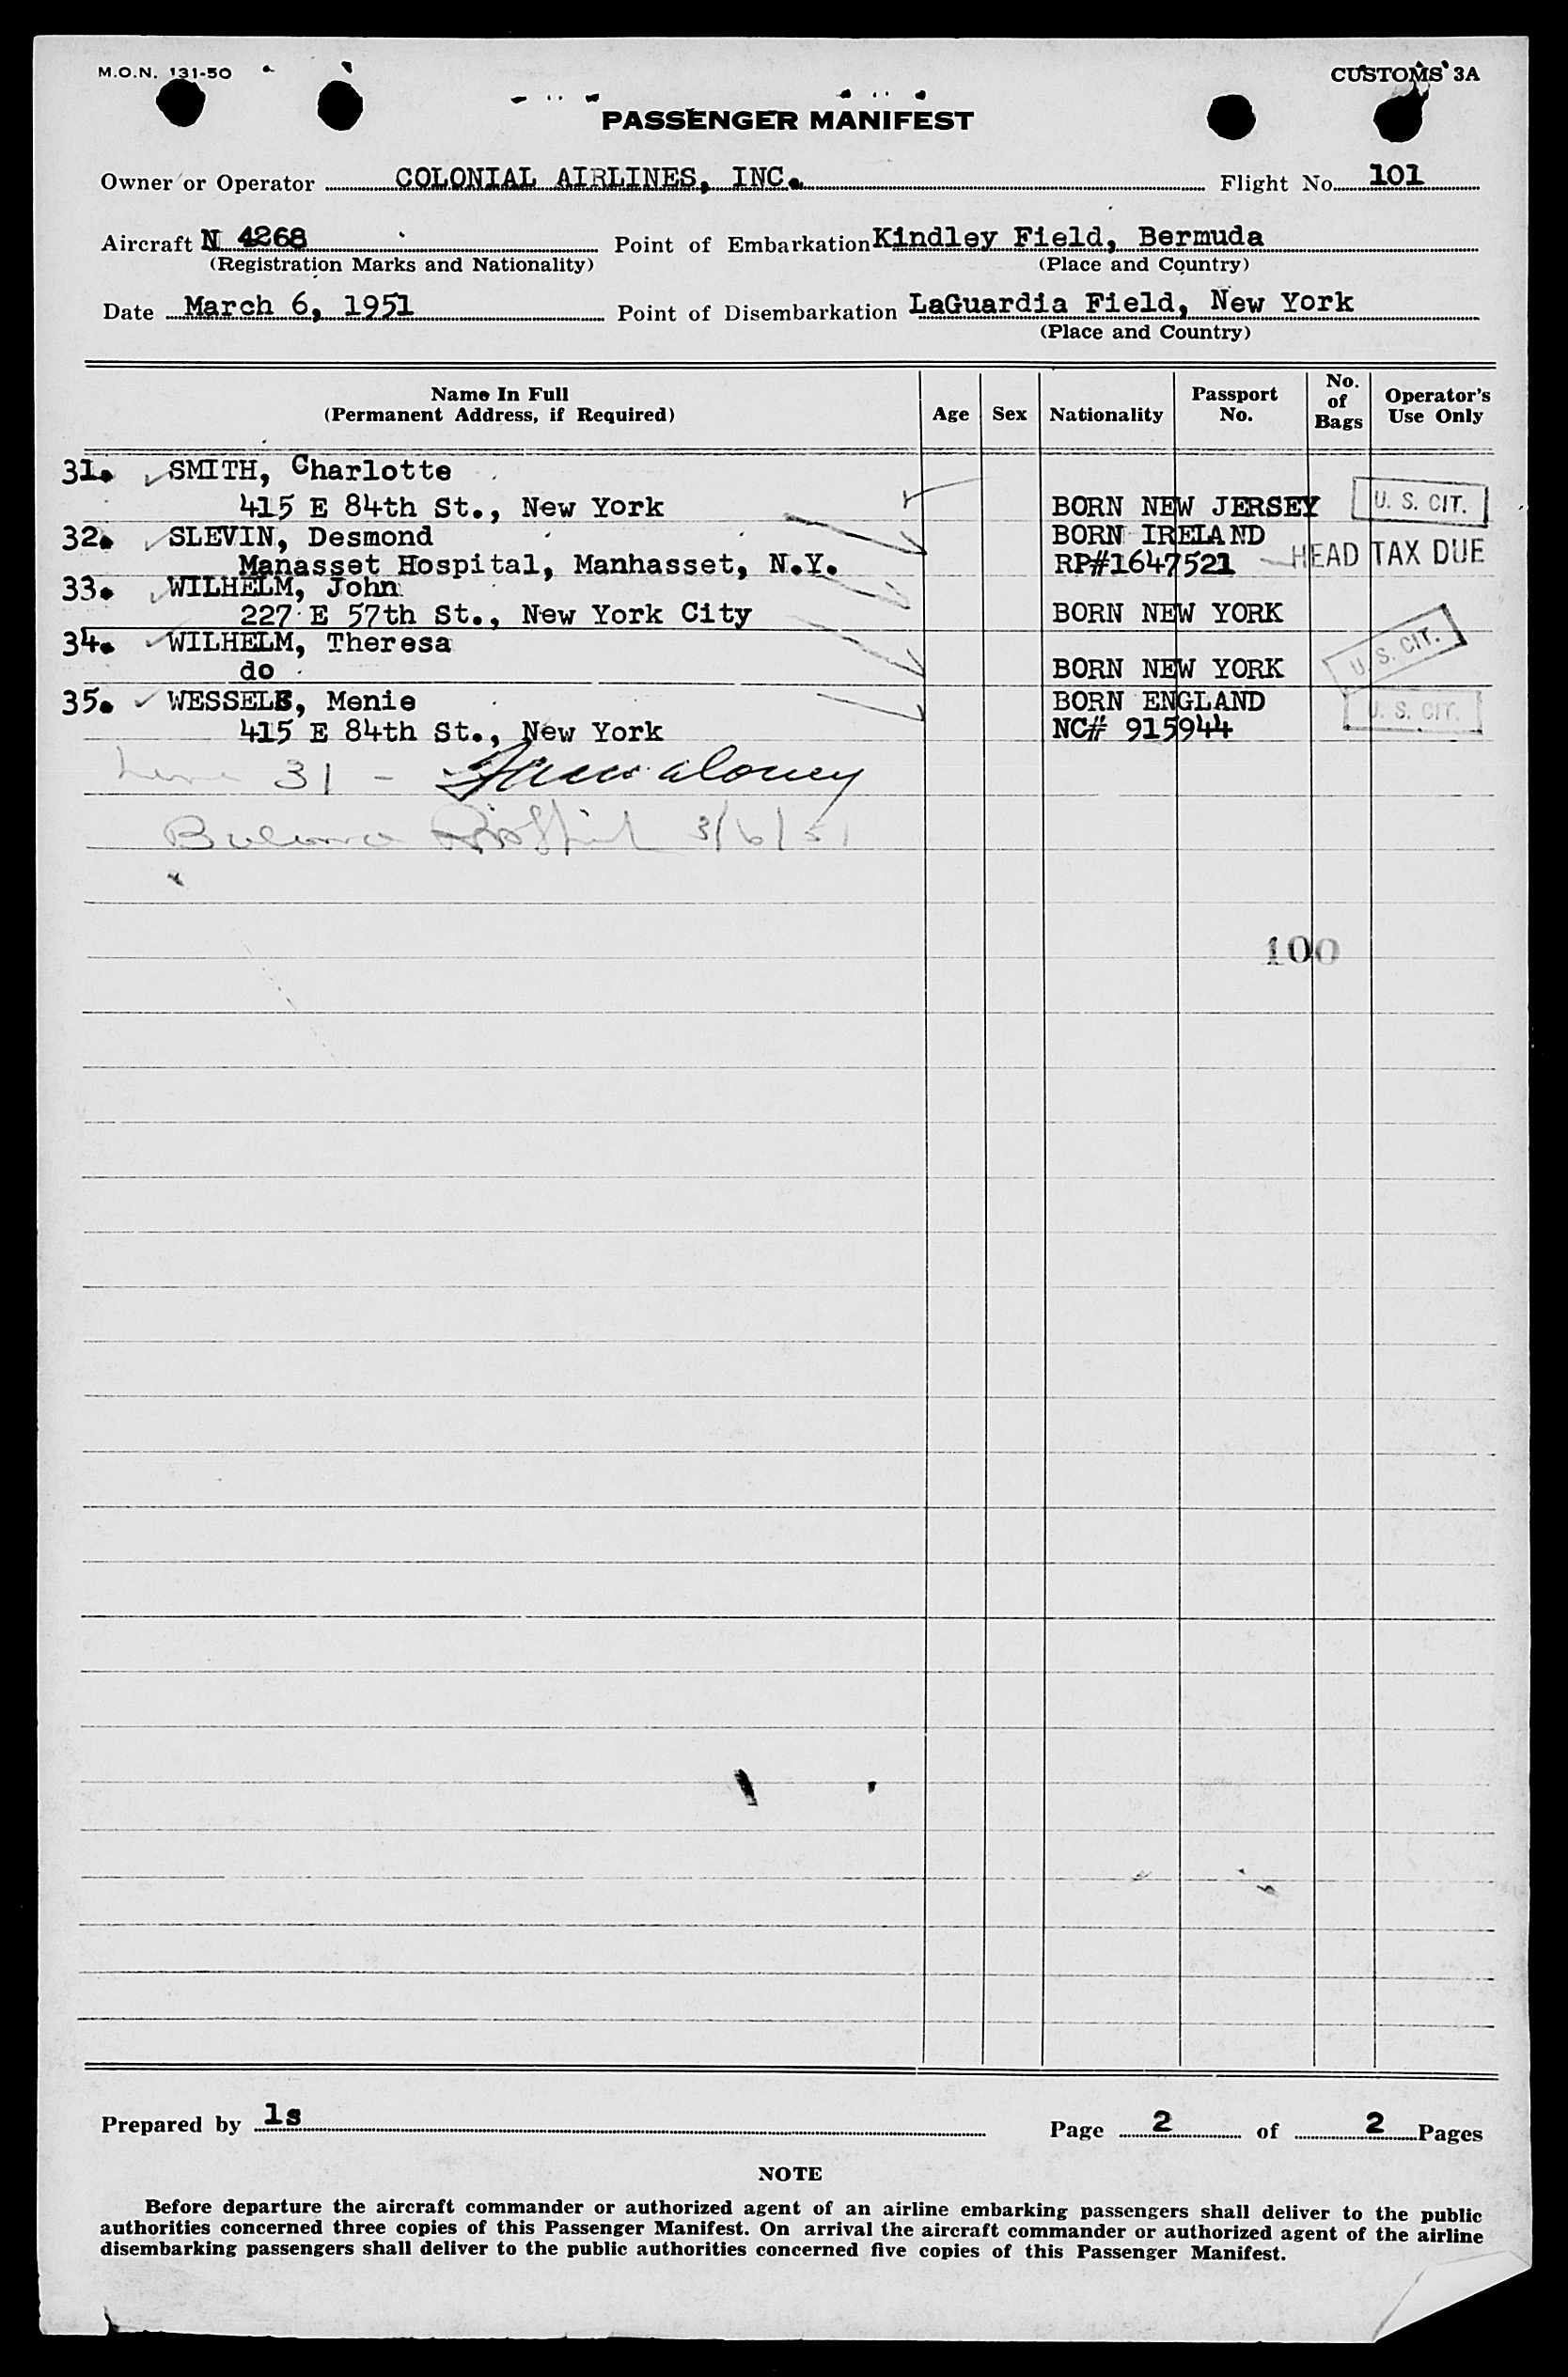 M.O.N. 131-50
CUSTOMS 3A
PASSENGER MANIFEST
Owner or Operator COLONIAL AIRLINES, INC. Flight No. 101
Aircraft N 4268 Point of Embarkation Kindley Field, Bermuda
(Registration Marks and Nationality) (Place and Country)
Date March 6, 1951 Point of Disembarkation LaGuardia Field, New York
(Place and Country)
Name In Full (Permanent Address, if Required) Age Sex Nationality Passport No. No. of Bags Operator's Use Only
31. SMITH, Charlotte
415 E 84th St., New York BORN NEW JERSEY U. S. CIT.
32. SLEVIN, Desmond BORN IRELAND
Manasset Hospital, Manhasset, N.Y. RP#1647521 HEAD TAX DUE
33. WILHELM, John
227 E 57th St., New York City BORN NEW YORK
34. WILHELM, Theresa U. S. CIT.
do BORN NEW YORK
35. WESSELS, Menie BORN ENGLAND U. S. CIT.
415 E 84th St., New York NC# 915944
31 -
3/6/51
100
Prepared by ls Page 2 of 2 Pages
NOTE
Before departure the aircraft commander or authorized agent of an airline embarking passengers shall deliver to the public
authorities concerned three copies of this Passenger Manifest. On arrival the aircraft commander or authorized agent of the airline
disembarking passengers shall deliver to the public authorities concerned five copies of this Passenger Manifest.